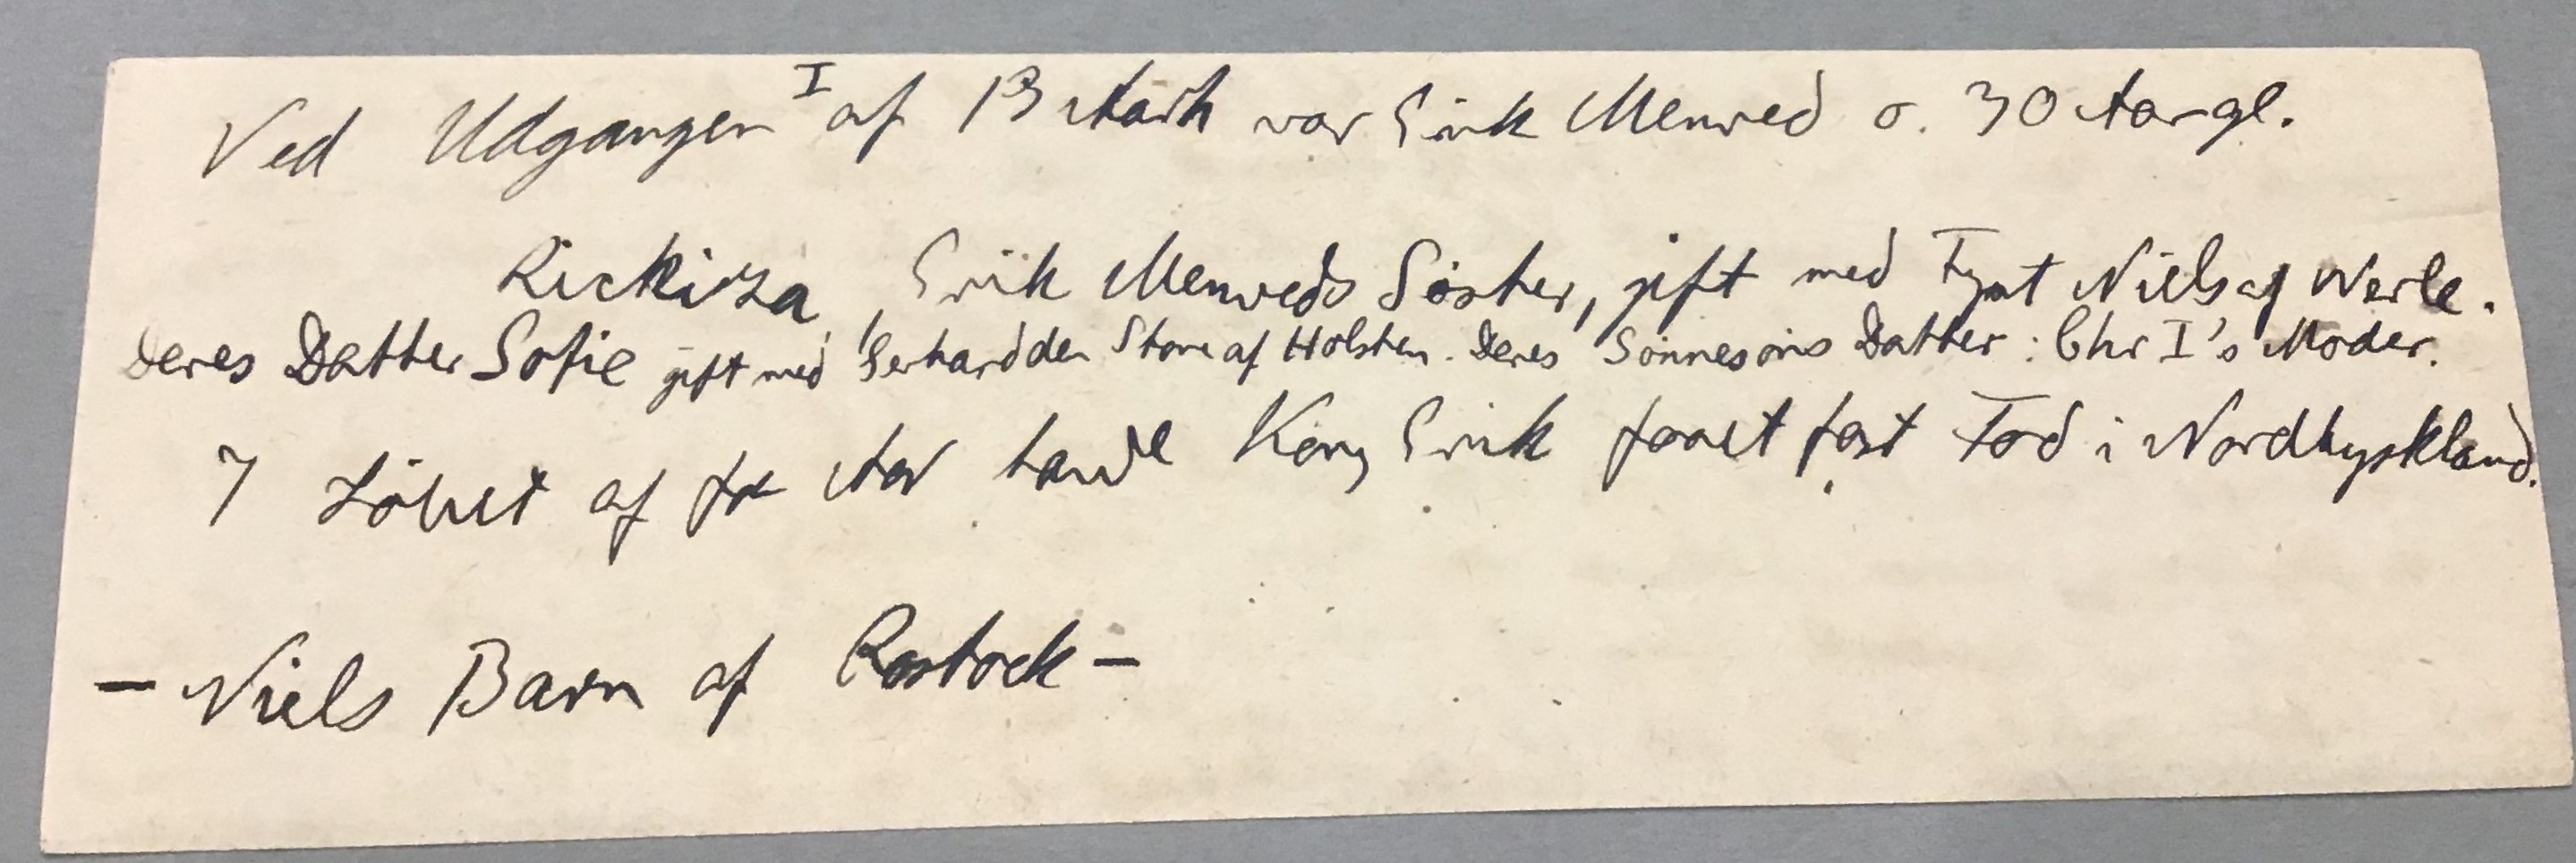 I
Ved Udgangen af 13 Aarh var Erik Menved o. 30 Aar gl.
Rickiza, Erik Menveds Söster, gift med Fyrst Niels af Werle.
Deres Datter Sofie gift med Gerhard den Store af Holsten. Deres Sönnesöns Datter: Chr I's Moder.
I Löbet af faa Aar havde Kong Erik faaet fast Fod i Nordtyskland.
— Niels Barn af Rostock —